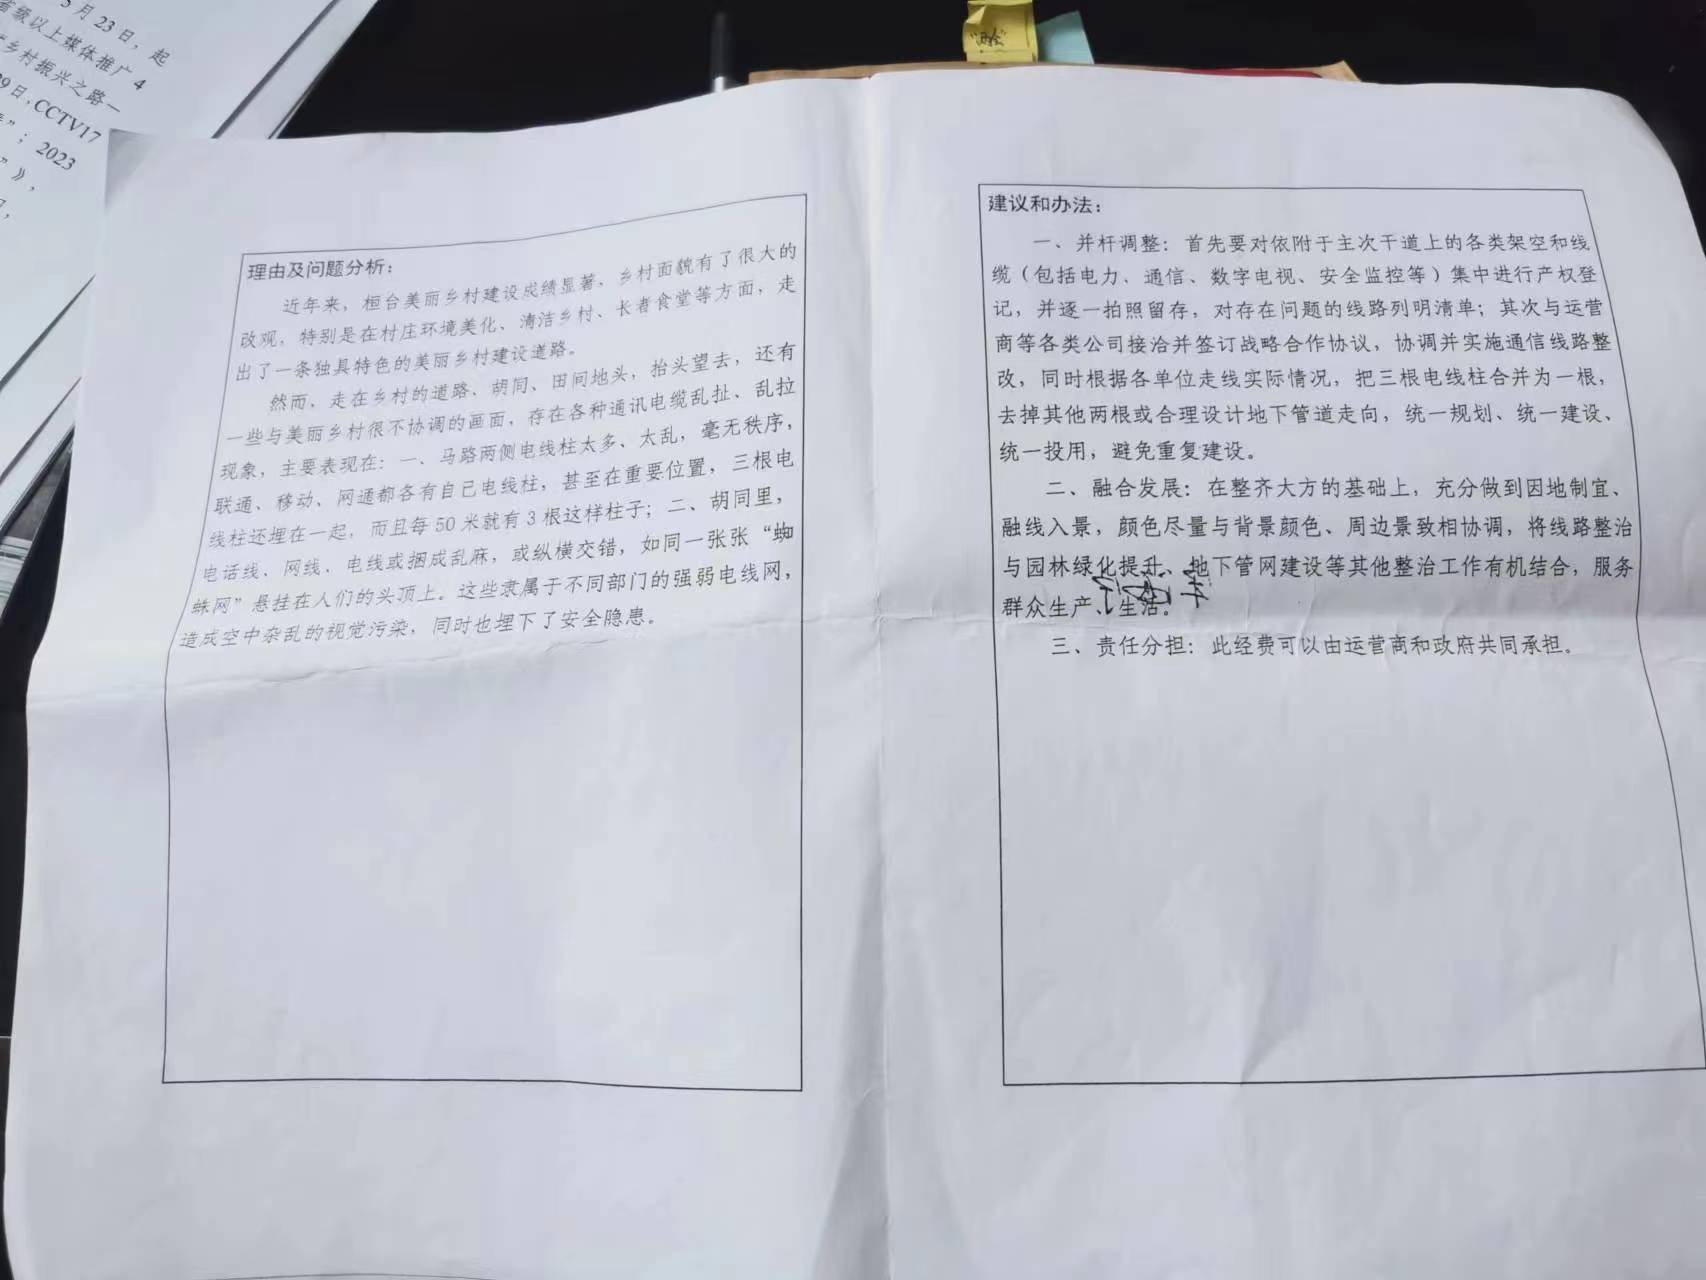 5月23日，起
省级以上媒体推广4
乡村振兴之路一
9日，CCTV17
”；2023
”》，
理由及问题分析：
近年来，桓台美丽乡村建设成绩显著，乡村面貌有了很大的
改观，特别是在村庄环境美化、清洁乡村、长者食堂等方面，走
出了一条独具特色的美丽乡村建设道路。
然而，走在乡村的道路、胡同、田间地头，抬头望去，还有
一些与美丽乡村很不协调的画面，存在各种通讯电缆乱扯、乱拉
现象，主要表现在：一、马路两侧电线柱太多、太乱，毫无秩序，
联通、移动、网通都各有自己电线柱，甚至在重要位置，三根电
线柱还埋在一起，而且每50米就有3根这样柱子；二、胡同里，
电话线、网线、电线或捆成乱麻，或纵横交错，如同一张张“蜘
蛛网”悬挂在人们的头顶上。这些隶属于不同部门的强弱电线网，
造成空中杂乱的视觉污染，同时也埋下了安全隐患。
建议和办法：
一、并杆调整：首先要对依附于主次干道上的各类架空和线
缆（包括电力、通信、数字电视、安全监控等）集中进行产权登
记，并逐一拍照留存，对存在问题的线路列明清单；其次与运营
商等各类公司接洽并签订战略合作协议，协调并实施通信线路整
改，同时根据各单位走线实际情况，把三根电线柱合并为一根，
去掉其他两根或合理设计地下管道走向，统一规划、统一建设、
统一投用，避免重复建设。
二、融合发展：在整齐大方的基础上，充分做到因地制宜、
融线入景，颜色尽量与背景颜色、周边景致相协调，将线路整治
与园林绿化提升、地下管网建设等其他整治工作有机结合，服务
群众生产、生活。
三、责任分担：此经费可以由运营商和政府共同承担。